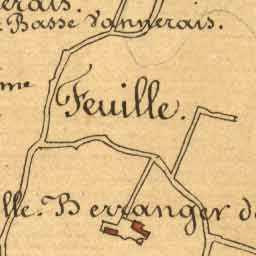 erais.
Basse Vannerais
me
Feuille.
lle. Berranger de